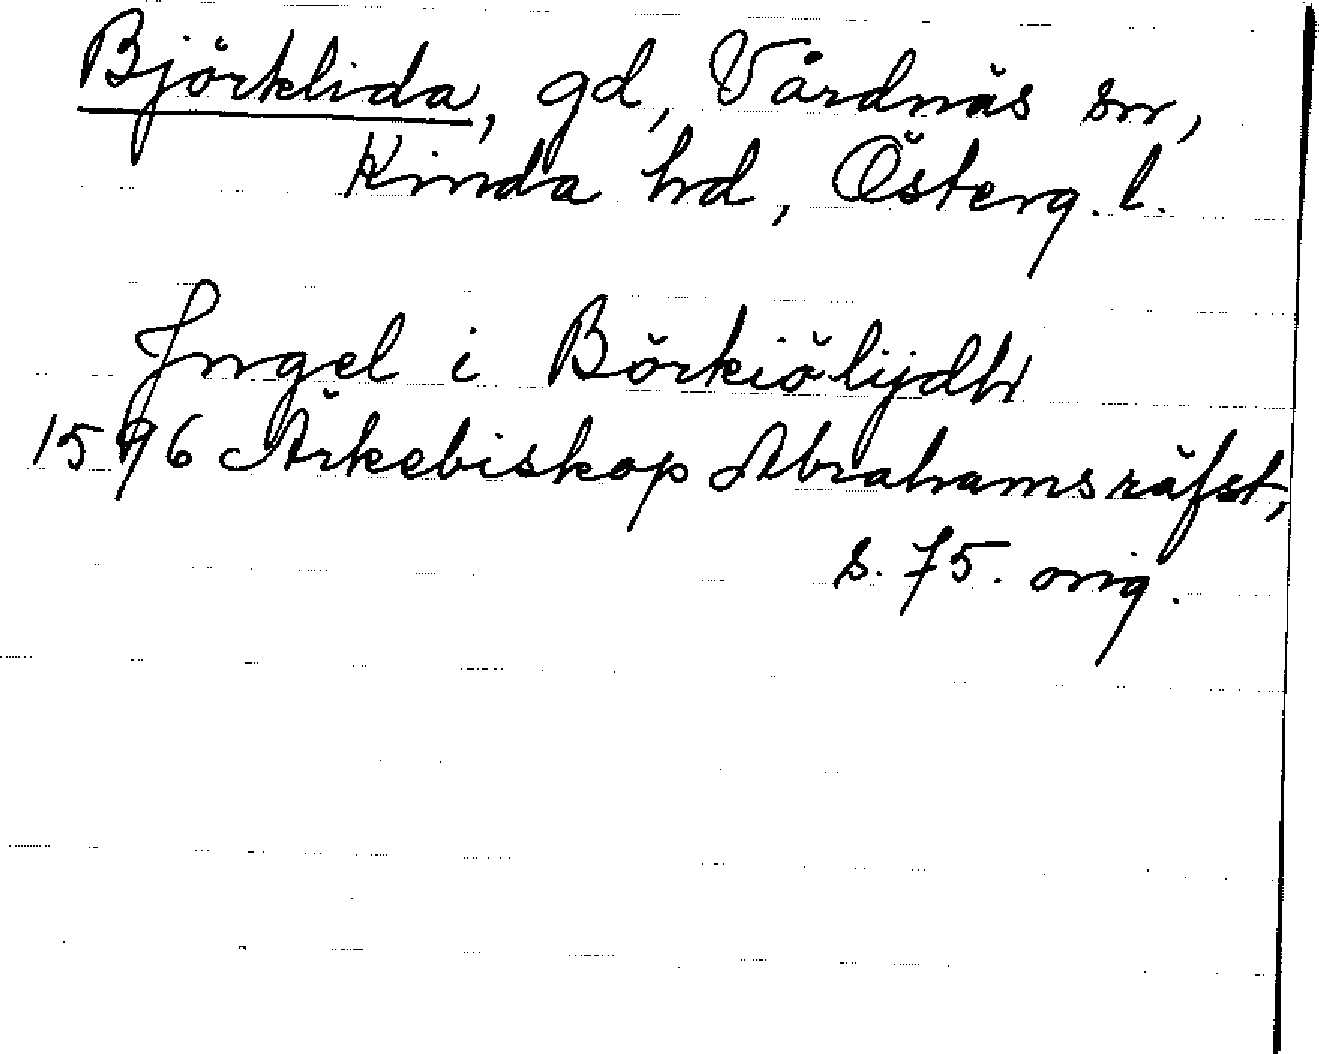 Björklida, gd, Vårdnäs sn,
Kinda hd, Österg. l.
Jngel i Börkiölijdh
1596 Ärkebiskop Abrahams räfst,
s. 75. orig.